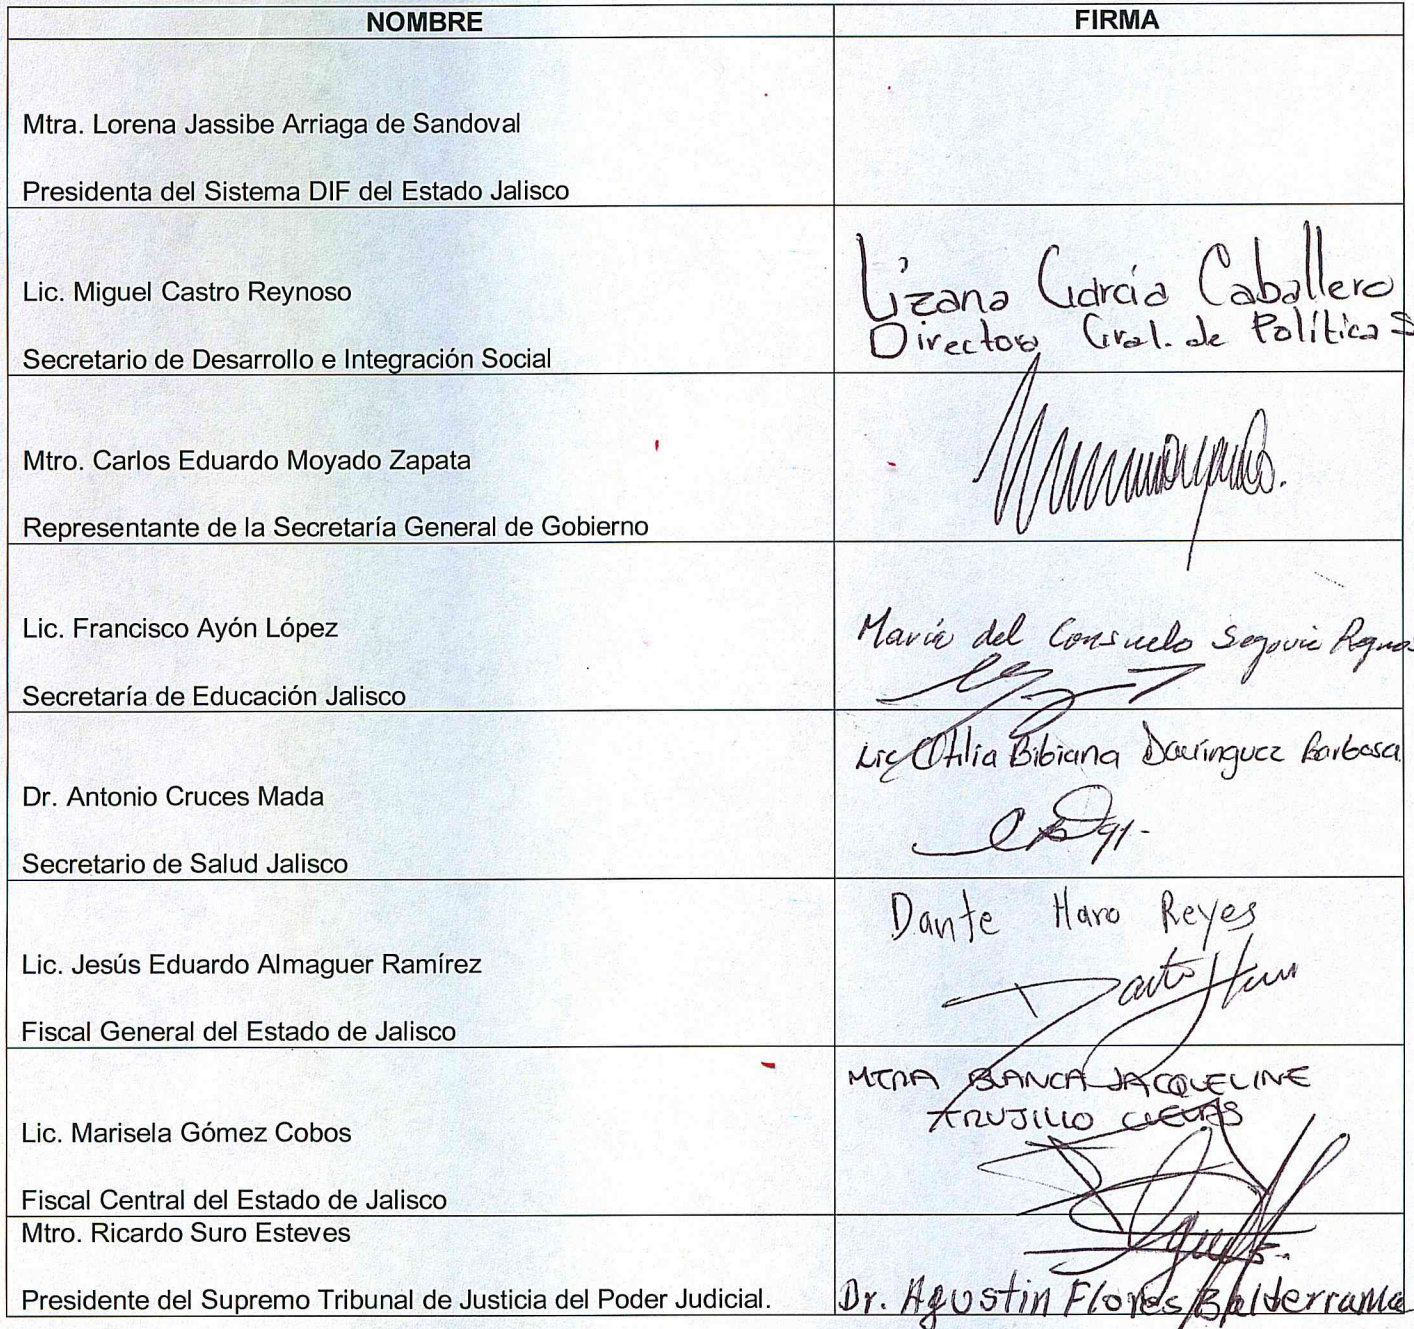 NOMBRE
FIRMA
Mtra. Lorena Jassibe Arriaga de Sandoval
Presidenta del Sistema DIF del Estado Jalisco
Lic. Miguel Castro Reynoso
Secretario de Desarrollo e Integración Social
Lizana García Caballero
Directora Gral. de Política S
Mtro. Carlos Eduardo Moyado Zapata
Representante de la Secretaría General de Gobierno
Lic. Francisco Ayón López
Secretaría de Educación Jalisco
María del Consuelo Segovia
Dr. Antonio Cruces Mada
Secretario de Salud Jalisco
Lic Otilia Bibiana Domínguez Barbosa
Lic. Jesús Eduardo Almaguer Ramírez
Fiscal General del Estado de Jalisco
Dante Haro Reyes
Lic. Marisela Gómez Cobos
Fiscal Central del Estado de Jalisco
MTRA BLANCA JACQUELINE
TRUJILLO CUEVAS
Mtro. Ricardo Suro Esteves
Presidente del Supremo Tribunal de Justicia del Poder Judicial.
Dr. Agustin Flores Balderrama